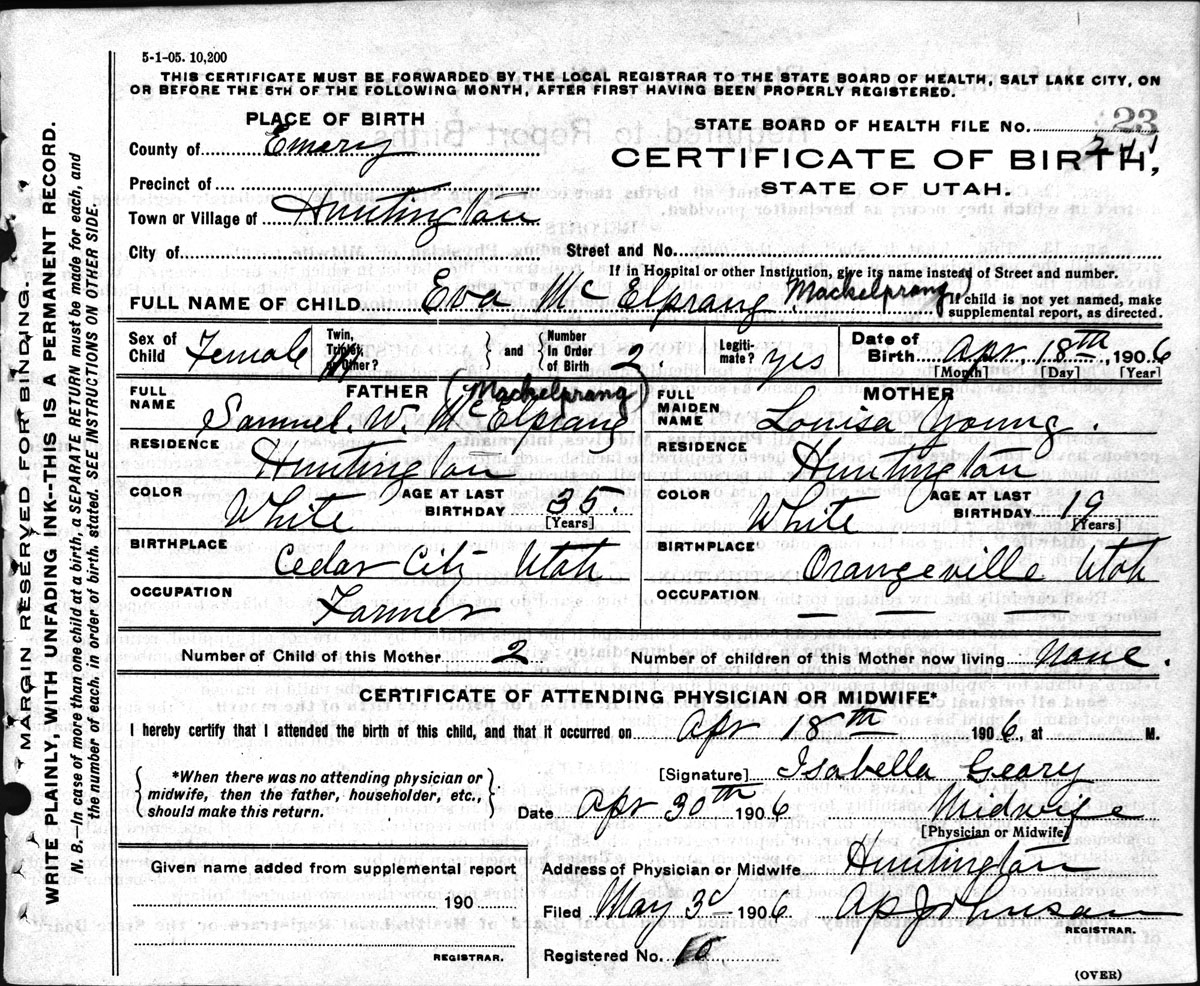 5-1-05. 10,200
THIS CERTIFICATE MUST BE FORWARDED BY THE LOCAL REGISTRAR TO THE STATE BOARD OF HEALTH, SALT LAKE CITY, ON
OR BEFORE THE 5TH OF THE FOLLOWING MONTH, AFTER FIRST HAVING BEEN PROPERLY REGISTERED.
MARGIN RESERVED FOR BINDING.
WRITE PLAINLY WITH UNFADING INK--THIS IS A PERMANENT RECORD.
N. B.—In case of more than one child at a birth, a SEPARATE RETURN must be made for each, and
the number of each, in order of birth, stated. SEE INSTRUCTIONS ON OTHER SIDE.
PLACE OF BIRTH
County of Emery
Precinct of
Town or Village of Huntington
City of
STATE BOARD OF HEALTH FILE No. 23
CERTIFICATE OF BIRTH,
STATE OF UTAH.
Street and No.
If in Hospital or other Institution, give its name instead of Street and number.
FULL NAME OF CHILD Eva McElprang (Mackelprang)
If child is not yet named, make
supplemental report, as directed.
Sex of Child Female
Twin, Triplet, or Other?
and
Number In Order of Birth 2
Legiti-mate? yes
Date of Birth Apr 18th, 1906
[Month] [Day] [Year]
FATHER
FULL NAME Samuel. W. McElprang (Mackelprang)
RESIDENCE Huntington
COLOR White
AGE AT LAST BIRTHDAY 35.
[Years]
BIRTHPLACE Cedar City Utah
OCCUPATION Farmer
MOTHER
FULL MAIDEN NAME Louisa Young.
RESIDENCE Huntington
COLOR White
AGE AT LAST BIRTHDAY 19
[Years]
BIRTHPLACE Orangeville Utah
OCCUPATION — —
Number of Child of this Mother 2
Number of children of this Mother now living None.
CERTIFICATE OF ATTENDING PHYSICIAN OR MIDWIFE*
I hereby certify that I attended the birth of this child, and that it occurred on Apr 18th 1906, at M.
*When there was no attending physician or
midwife, then the father, householder, etc.,
should make this return.
[Signature] Isabella Geary
Date Apr 30th 1906 Midwife
[Physician or Midwife]
Given name added from supplemental report
190
REGISTRAR.
Address of Physician or Midwife Huntington
Filed May 3d 1906 A P Johnson
REGISTRAR.
Registered No. 10
(OVER)